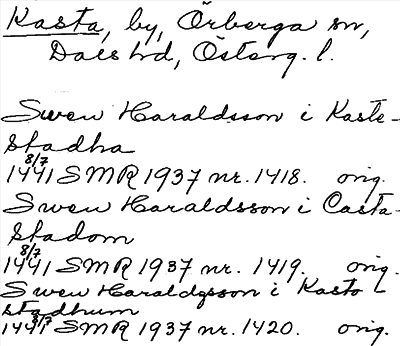 Kasta, by, Örberga sn,
Dals hd, Österg. l.
Swen Haraldsson i Kaste-
stadha
8/7
1441 SMR 1937 nr. 1418. orig.
Swen Haraldsson i Casta-
stadom
8/7
1441 SMR 1937 nr. 1419. orig.
Swen Haraldzsson i Kasto-
stadhum
1441 8/7 SMR 1937 nr. 1420. orig.